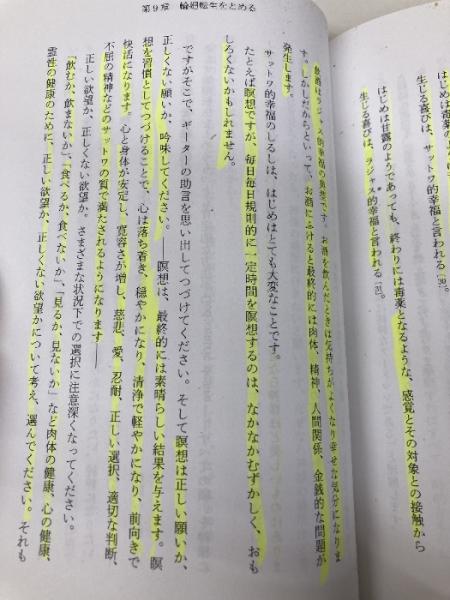 第9章　輪廻転生をとめる
はじめは毒薬の
生じる喜びは、サットワ的幸福と言われる［30］。
はじめは甘露のようであっても、終わりには毒薬となるような、感覚とその対象との接触から
生じる喜びは、ラジャス的幸福と言われる［31］。
飲酒はラジャス的幸福の典型です。お酒を飲んだときは気持ちがよくなり幸せな気分になりま
す。しかしだからといって、お酒にふけると最終的には肉体、精神、人間関係、金銭的な問題が
発生します。
サットワ的幸福のしるしは、はじめはとても大変なことです。
たとえば瞑想ですが、毎日毎日規則的に一定時間を瞑想するのは、なかなかむずかしく、おも
しろくないかもしれません。
ですがそこで、ギーターの助言を思い出してつづけてください。そして瞑想は正しい願いか、
正しくない願いか、吟味してください。――瞑想は、最終的には素晴らしい結果を与えます。瞑
想を習慣としてつづけることで、心は落ち着き、穏やかになり、清浄で軽やかになり、前向きで
快活になります。心と身体が安定し、寛容さが増し、慈悲、愛、忍耐、正しい選択、適切な判断、
不屈の精神などのサットワの質で満たされるようになります――
正しい欲望か、正しくない欲望か。さまざまな状況下での選択に注意深くなってください。
「飲むか、飲まないか」、「食べるか、食べないか」、「見るか、見ないか」など肉体の健康、心の健康、
霊性の健康のために、正しい欲望か、正しくない欲望かについて考え、選んでください。それも